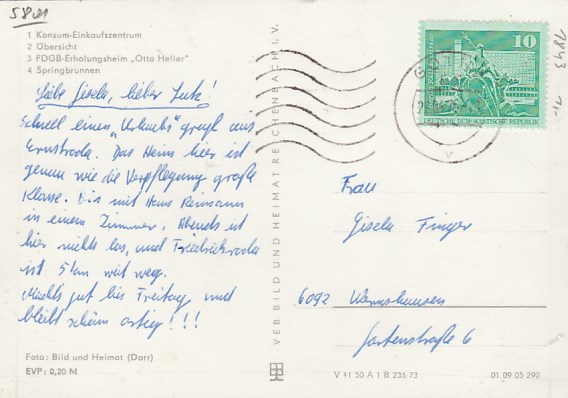 5801
1 Konsum-Einkaufszentrum
2 Übersicht
3 FDGB-Erholungsheim „Otto Heller"
4 Springbrunnen
Liebe Gisela, lieber Lutz!
Schnell einen „Urlaubs" gruß aus
Ernstroda. Das Heim hier ist
genau wie die Verpflegung große
Klasse. Bin mit Hans
in einem Zimmer. Abends ist
hier nichts los, und Friedrichroda
ist 5 km weit weg.
Machts gut bis Freitag und
bleibt schön artig!!!
Foto: Bild und Heimat (Darr)
EVP: 0,20 M
VEB BILD UND HEIMAT REICHENBACH I. V.
10
DEUTSCHE DEMOKRATISCHE REPUBLIK
1843
Frau
Gisela Finger
6092 Wernshausen
Gartenstraße 6
V 11 50 A 1 B 235/73
01 09 05 290